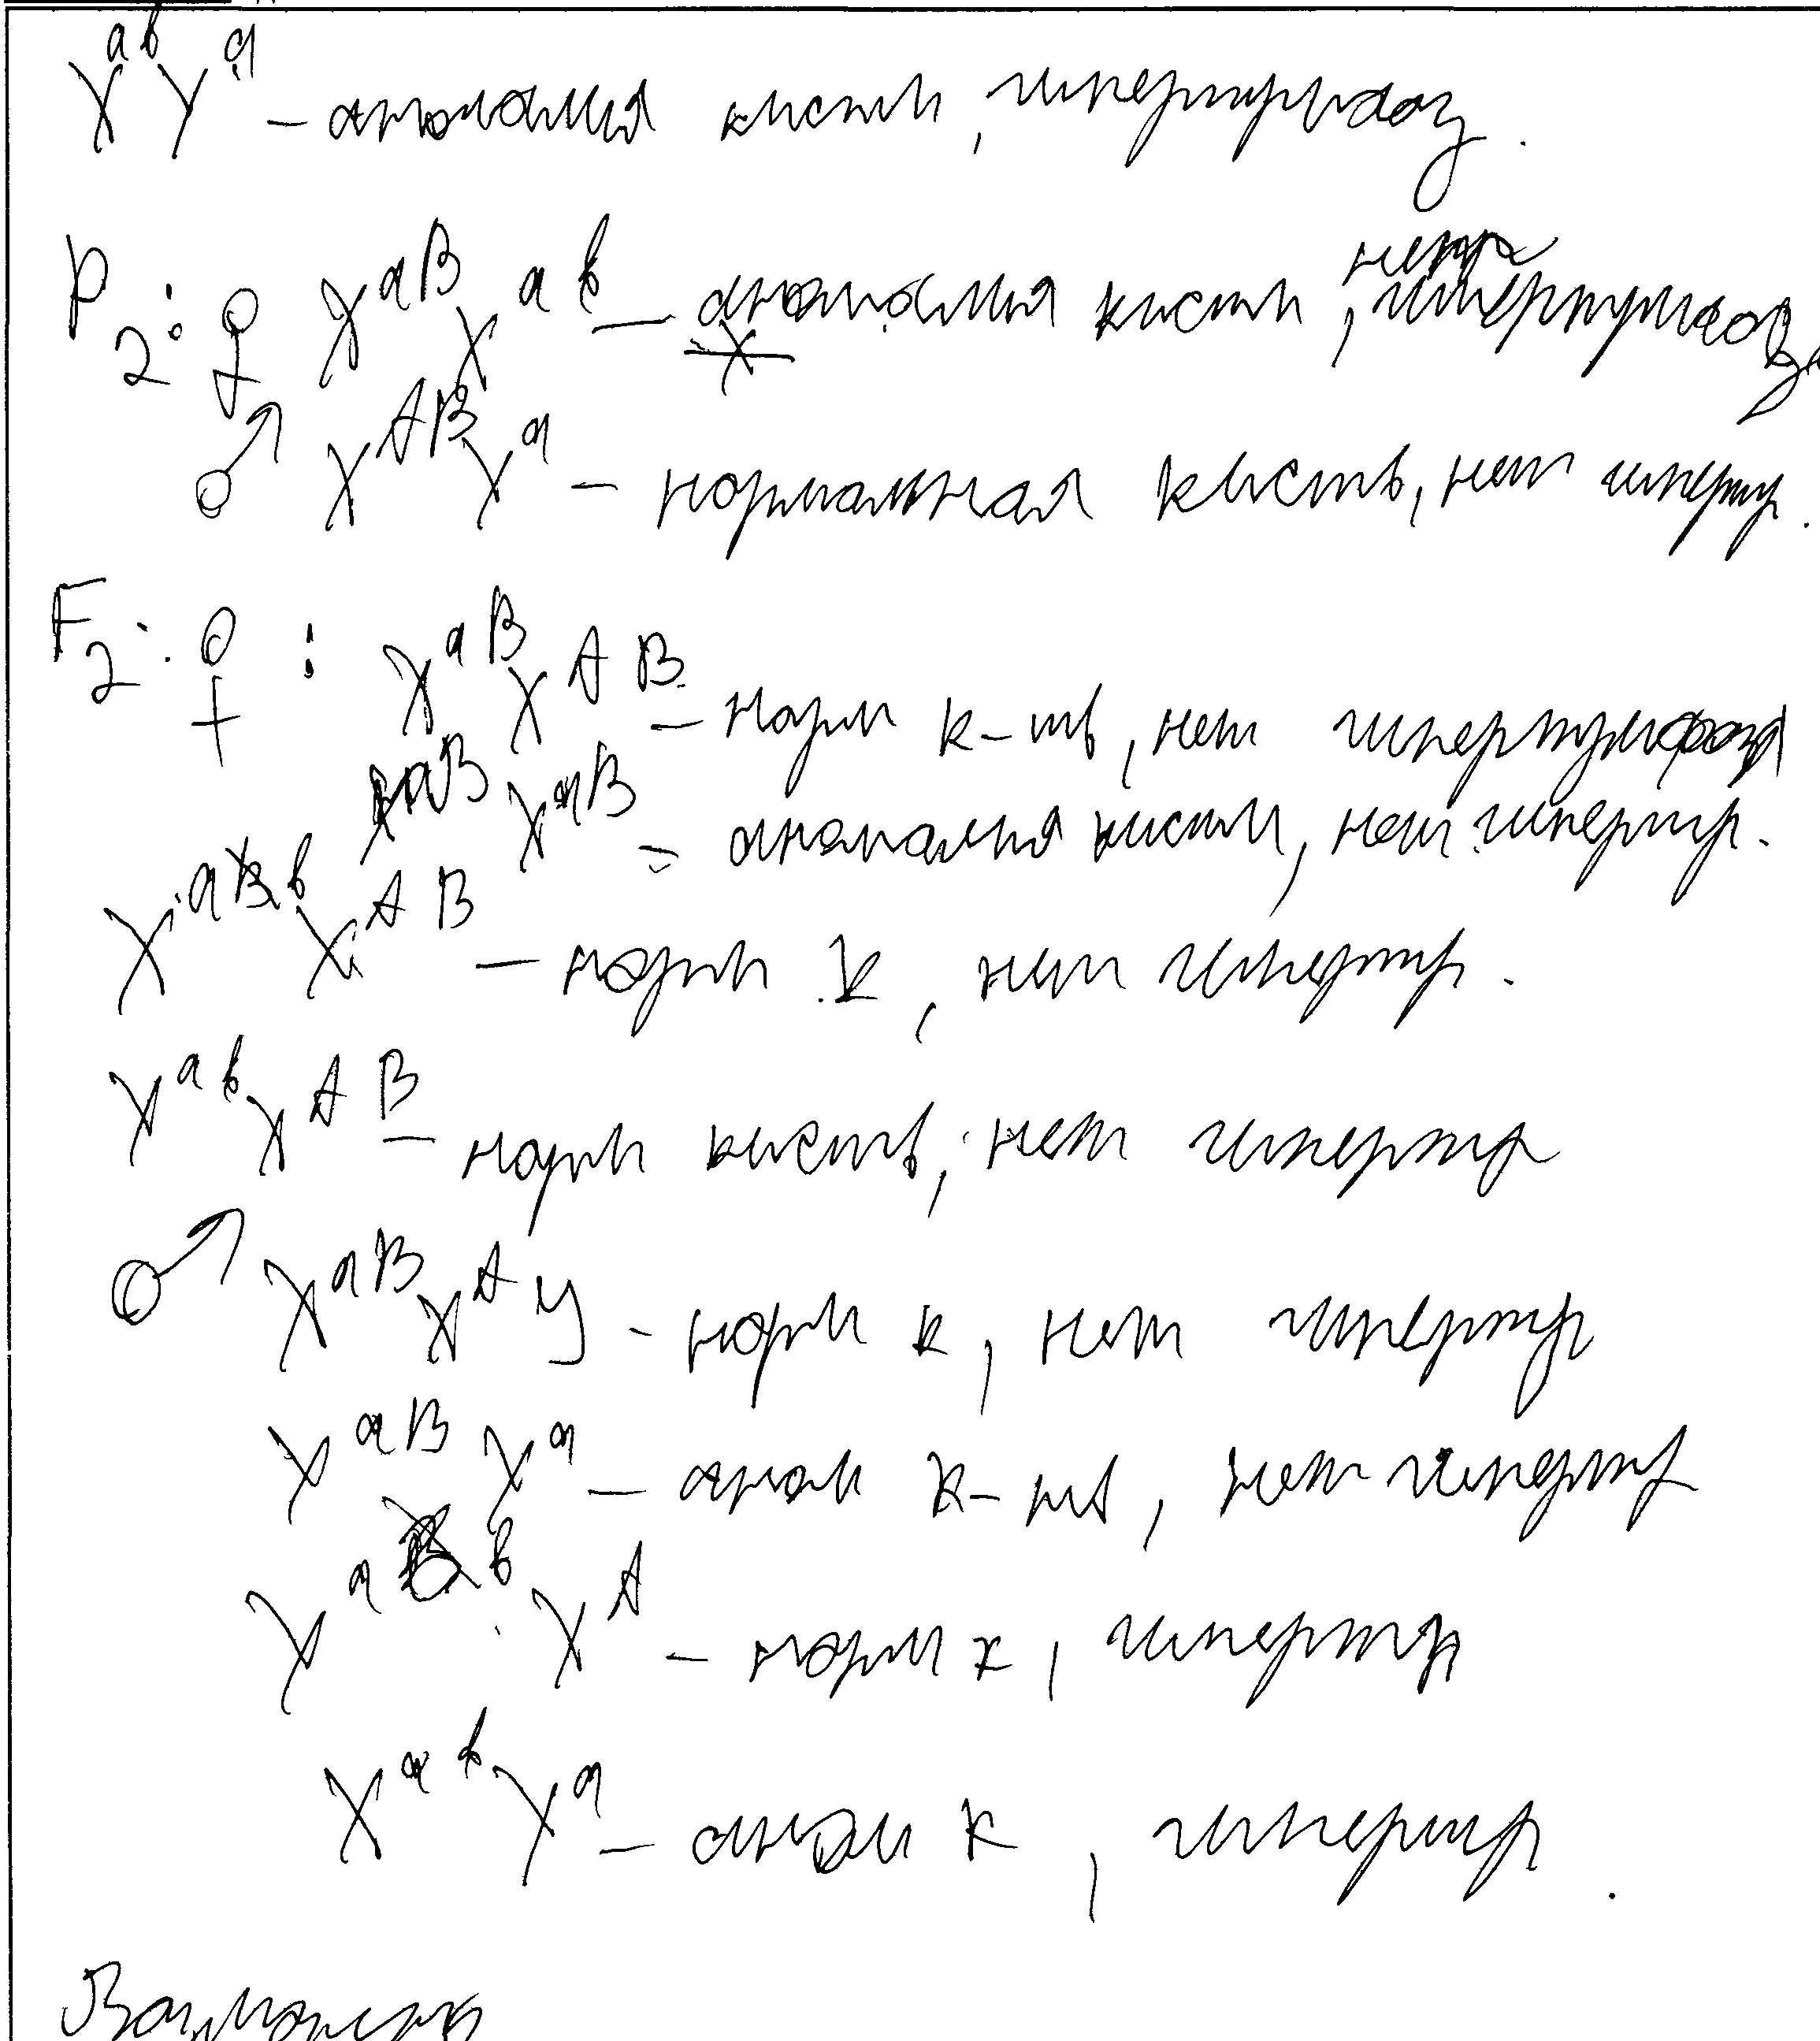 X^ab Y^a – аномалия кисти, гипертрихоз.
P2: ♀ X^aB X^ab – аномалия кисти, нет гипертрихоза
♂ X^AB Y^a – нормальная кисть, нет гипертр.
F2: ♀: X^aB X^AB – норм к-ть, нет гипертрихоза
X^aB X^aB – аномалия кисти, нет гипертр.
X^ab X^AB – норм к, нет гипертр.
X^ab X^AB – норм кисть, нет гипертр
♂ X^aB Y^A – норм к, нет гипертр
X^aB Y^a – аном к-ть, нет гипертр
X^ab Y^A – норм к, гипертр
X^ab Y^a – аном к, гипертр.